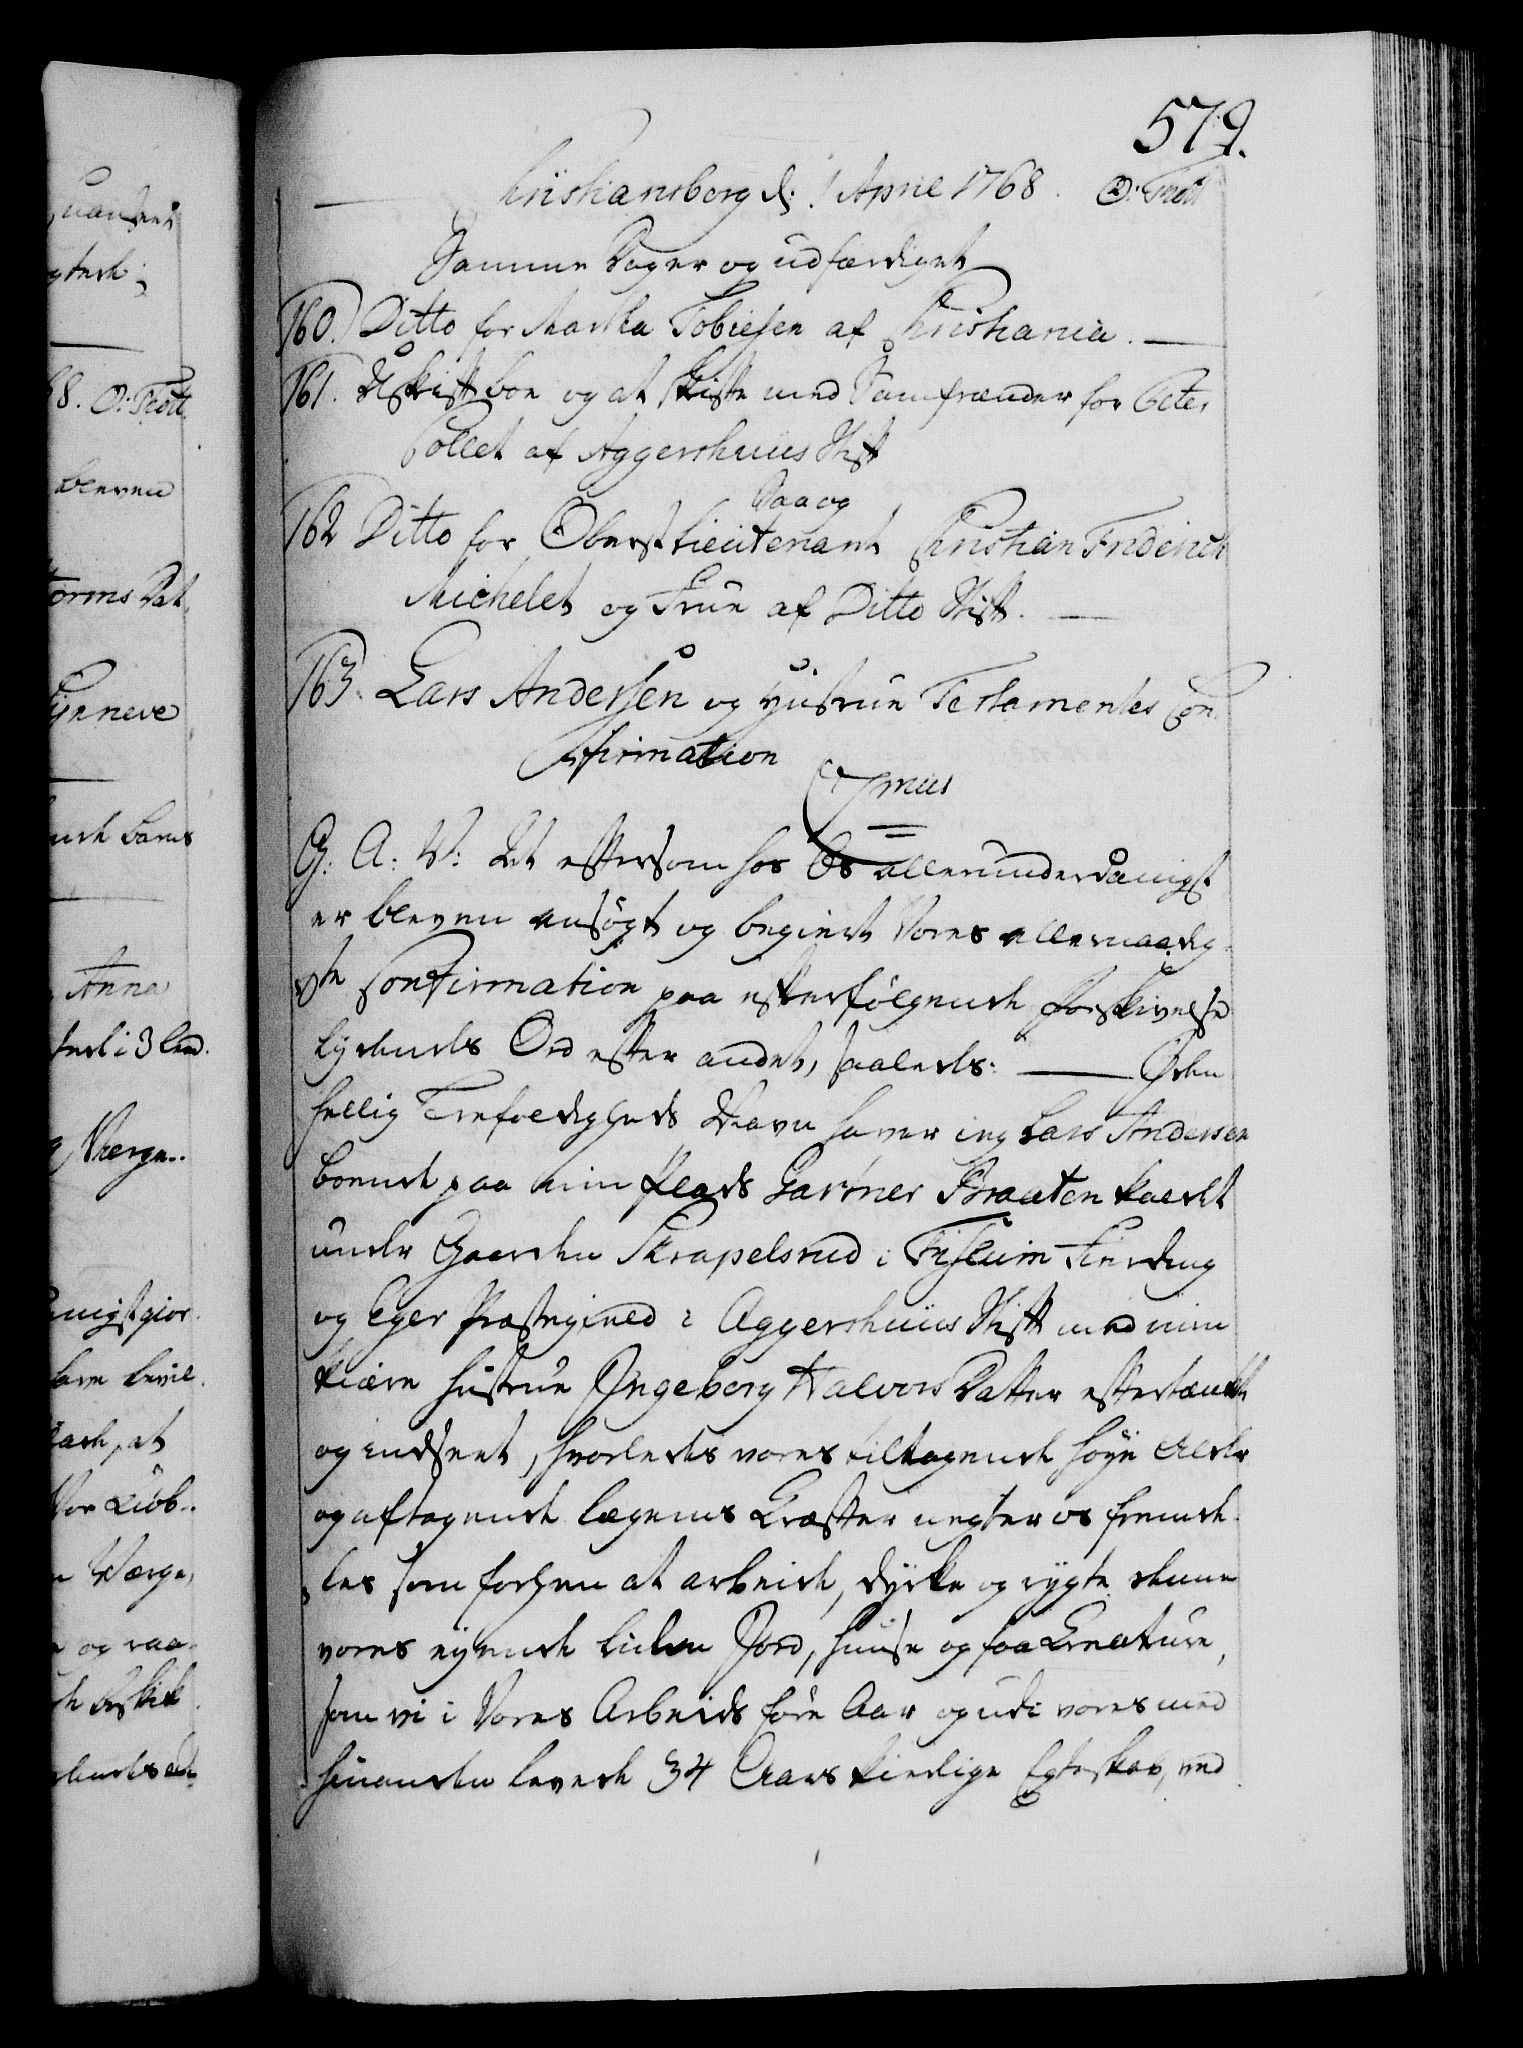 579.
Christiansborg d: 1 April 1768. O: Thott
Samme Dager og udfærdiget
160. Ditto for Martha Tobiesen af Christiania.
161. Uskift boe og at skifte med Samfrænder for Peter
Collet af Aggershuus Stift
162 Ditto for Oberstlieutenant Daa og Christian Friderich
Michelet og Frue af Ditto Stift.
163. Lars Andersen og Hustrue Testamentes Con-
firmation
G: A: V: At eftersom hos Os allerunderdanigst
er bleven ansøgt og begiert Vores allernaadig-
ste Confirmation paa efterfølgende Forskrivelse
lydende Ord efter andet, saaledes: — I den
hellig Trefoldigheds Navn haver ieg Lars Andersen
boende paa min Plads Gartner Braaten kaldet
under Gaarden Skrapelsrud i Fischum Fierding
og Eger Præstegield i Aggershuus Stift med min
kiære Hustrue Ingeborg Halvors Datter eftertænkt
og indseet, hvorledes vores tiltagende høye Alder
og aftagende Legems Kræfter negter os fremde-
les som forhen at arbeide, dyrke og rygte denne
vores eyende liden Jord, Huuse og faa Creature,
som vi i Vores Arbeids føre Aar og udi vores med
hinanden levede 34 Aars kierlige Egteskab, ved
Tynneve
bleven
Anna
og Værge..
O: Thott.